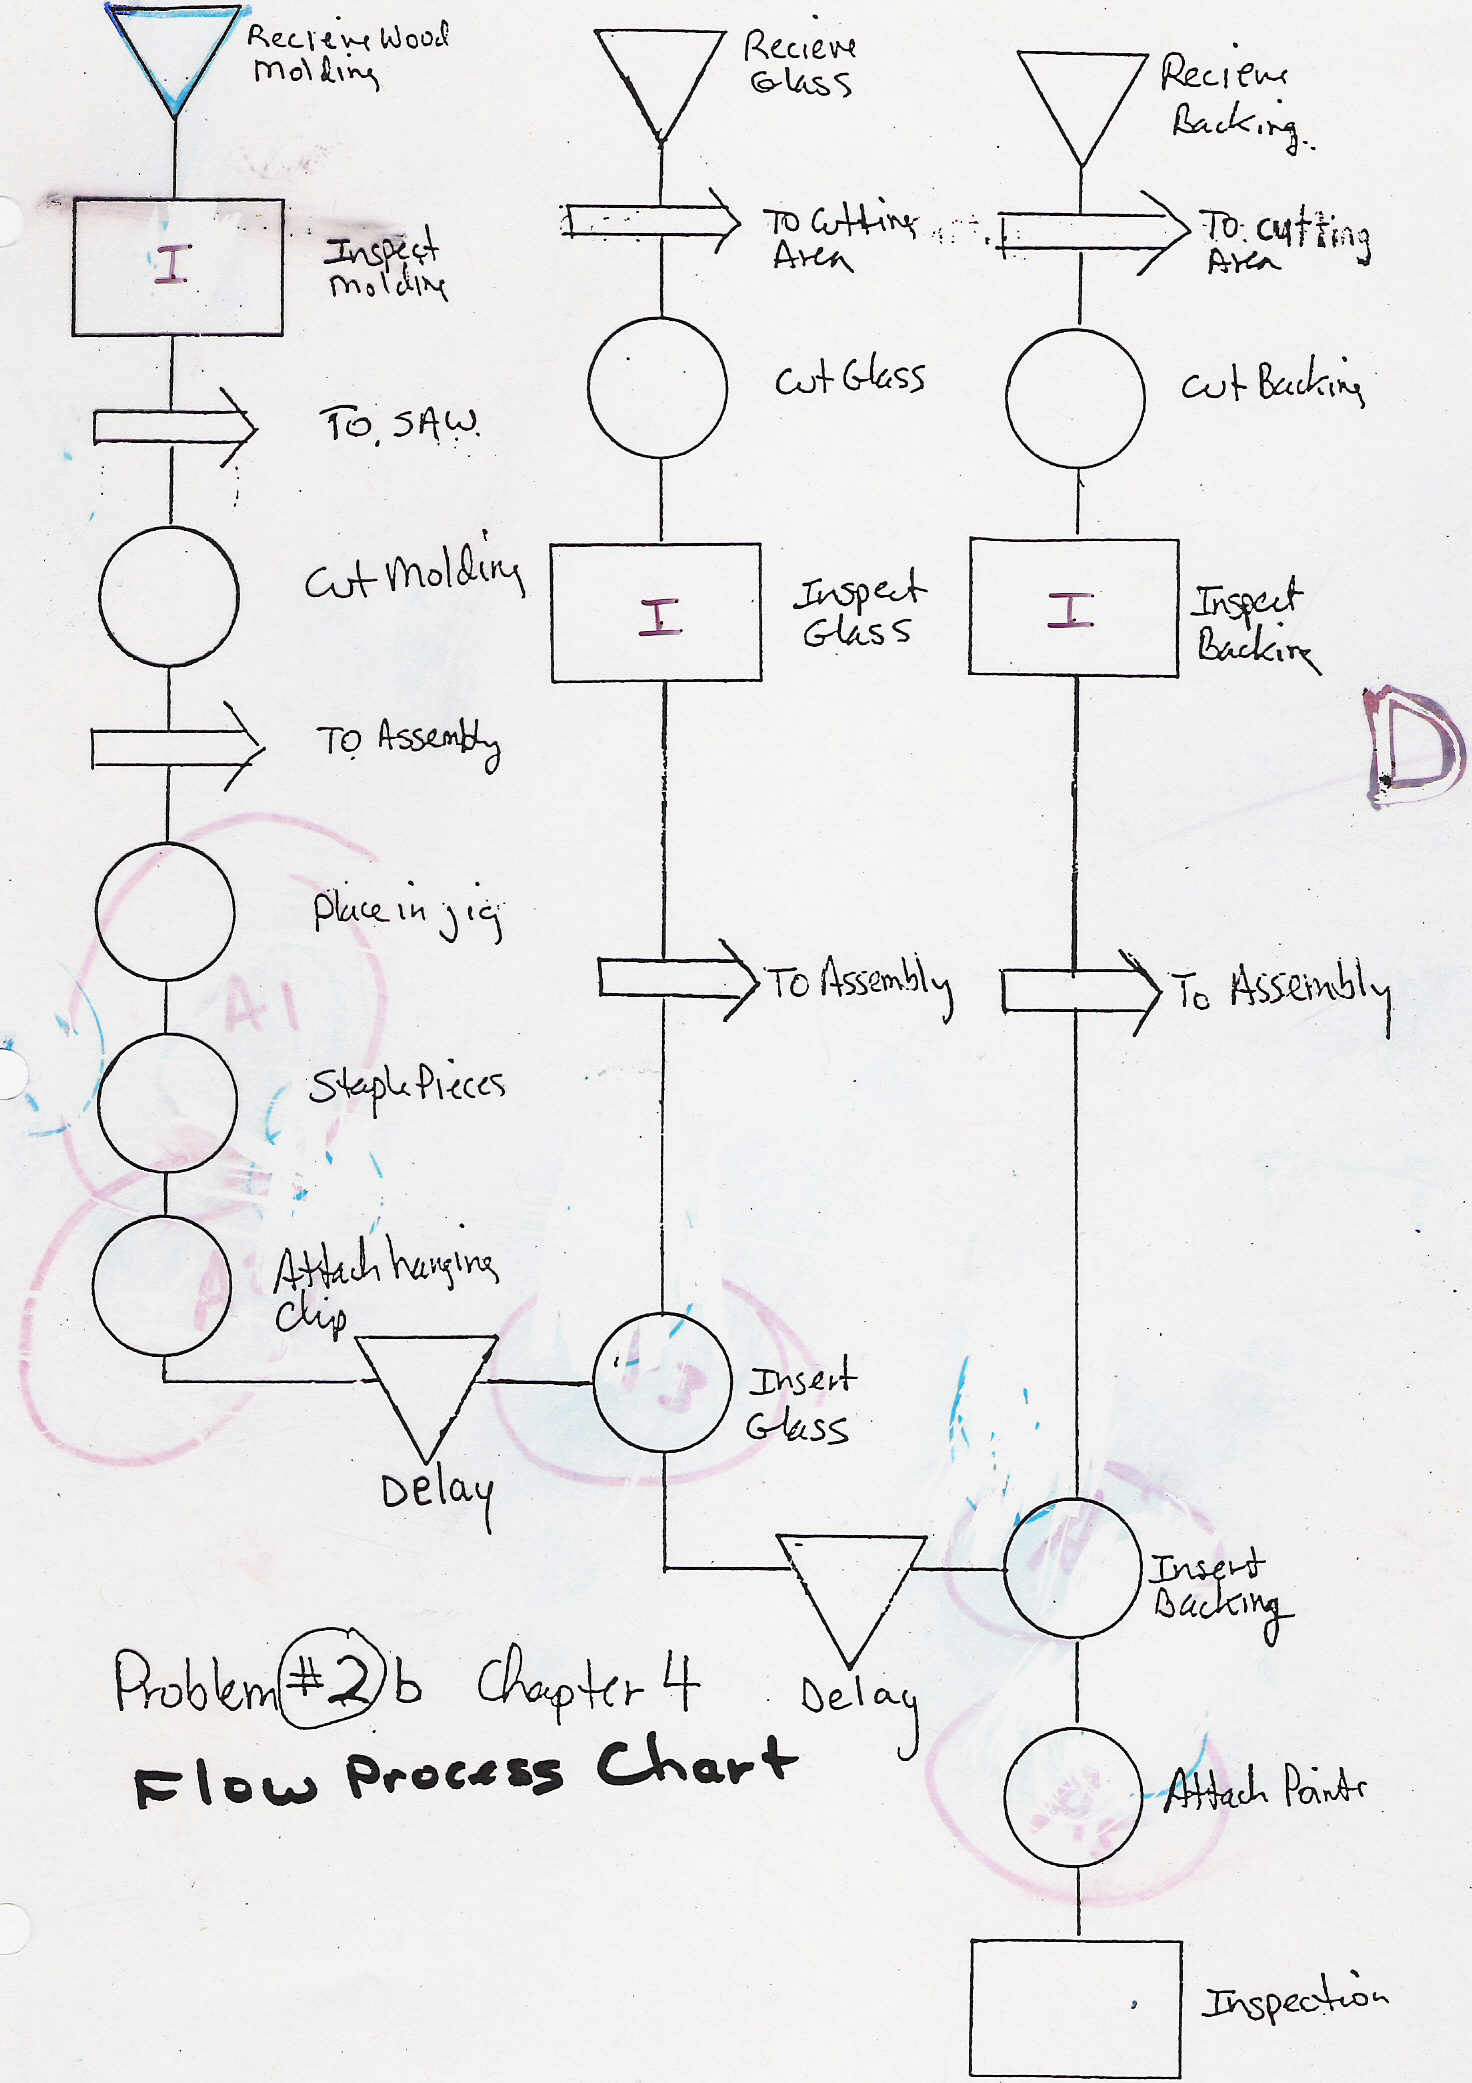 Recieve Wood
Molding
I
Inspect
Molding
To SAW.
Cut Molding
To Assembly
Place in jig
Staple Pieces
Attach hanging
Clip
Delay
Recieve
Glass
To Cutting
Area
Cut Glass
I
Inspect
Glass
To Assembly
Insert
Glass
Delay
Recieve
Backing.
To cutting
Area
Cut Backing
I
Inspect
Backing
D
To Assembly
Insert
Backing
Attach Points
Inspection
A1
Problem #2b Chapter 4
Flow Process Chart